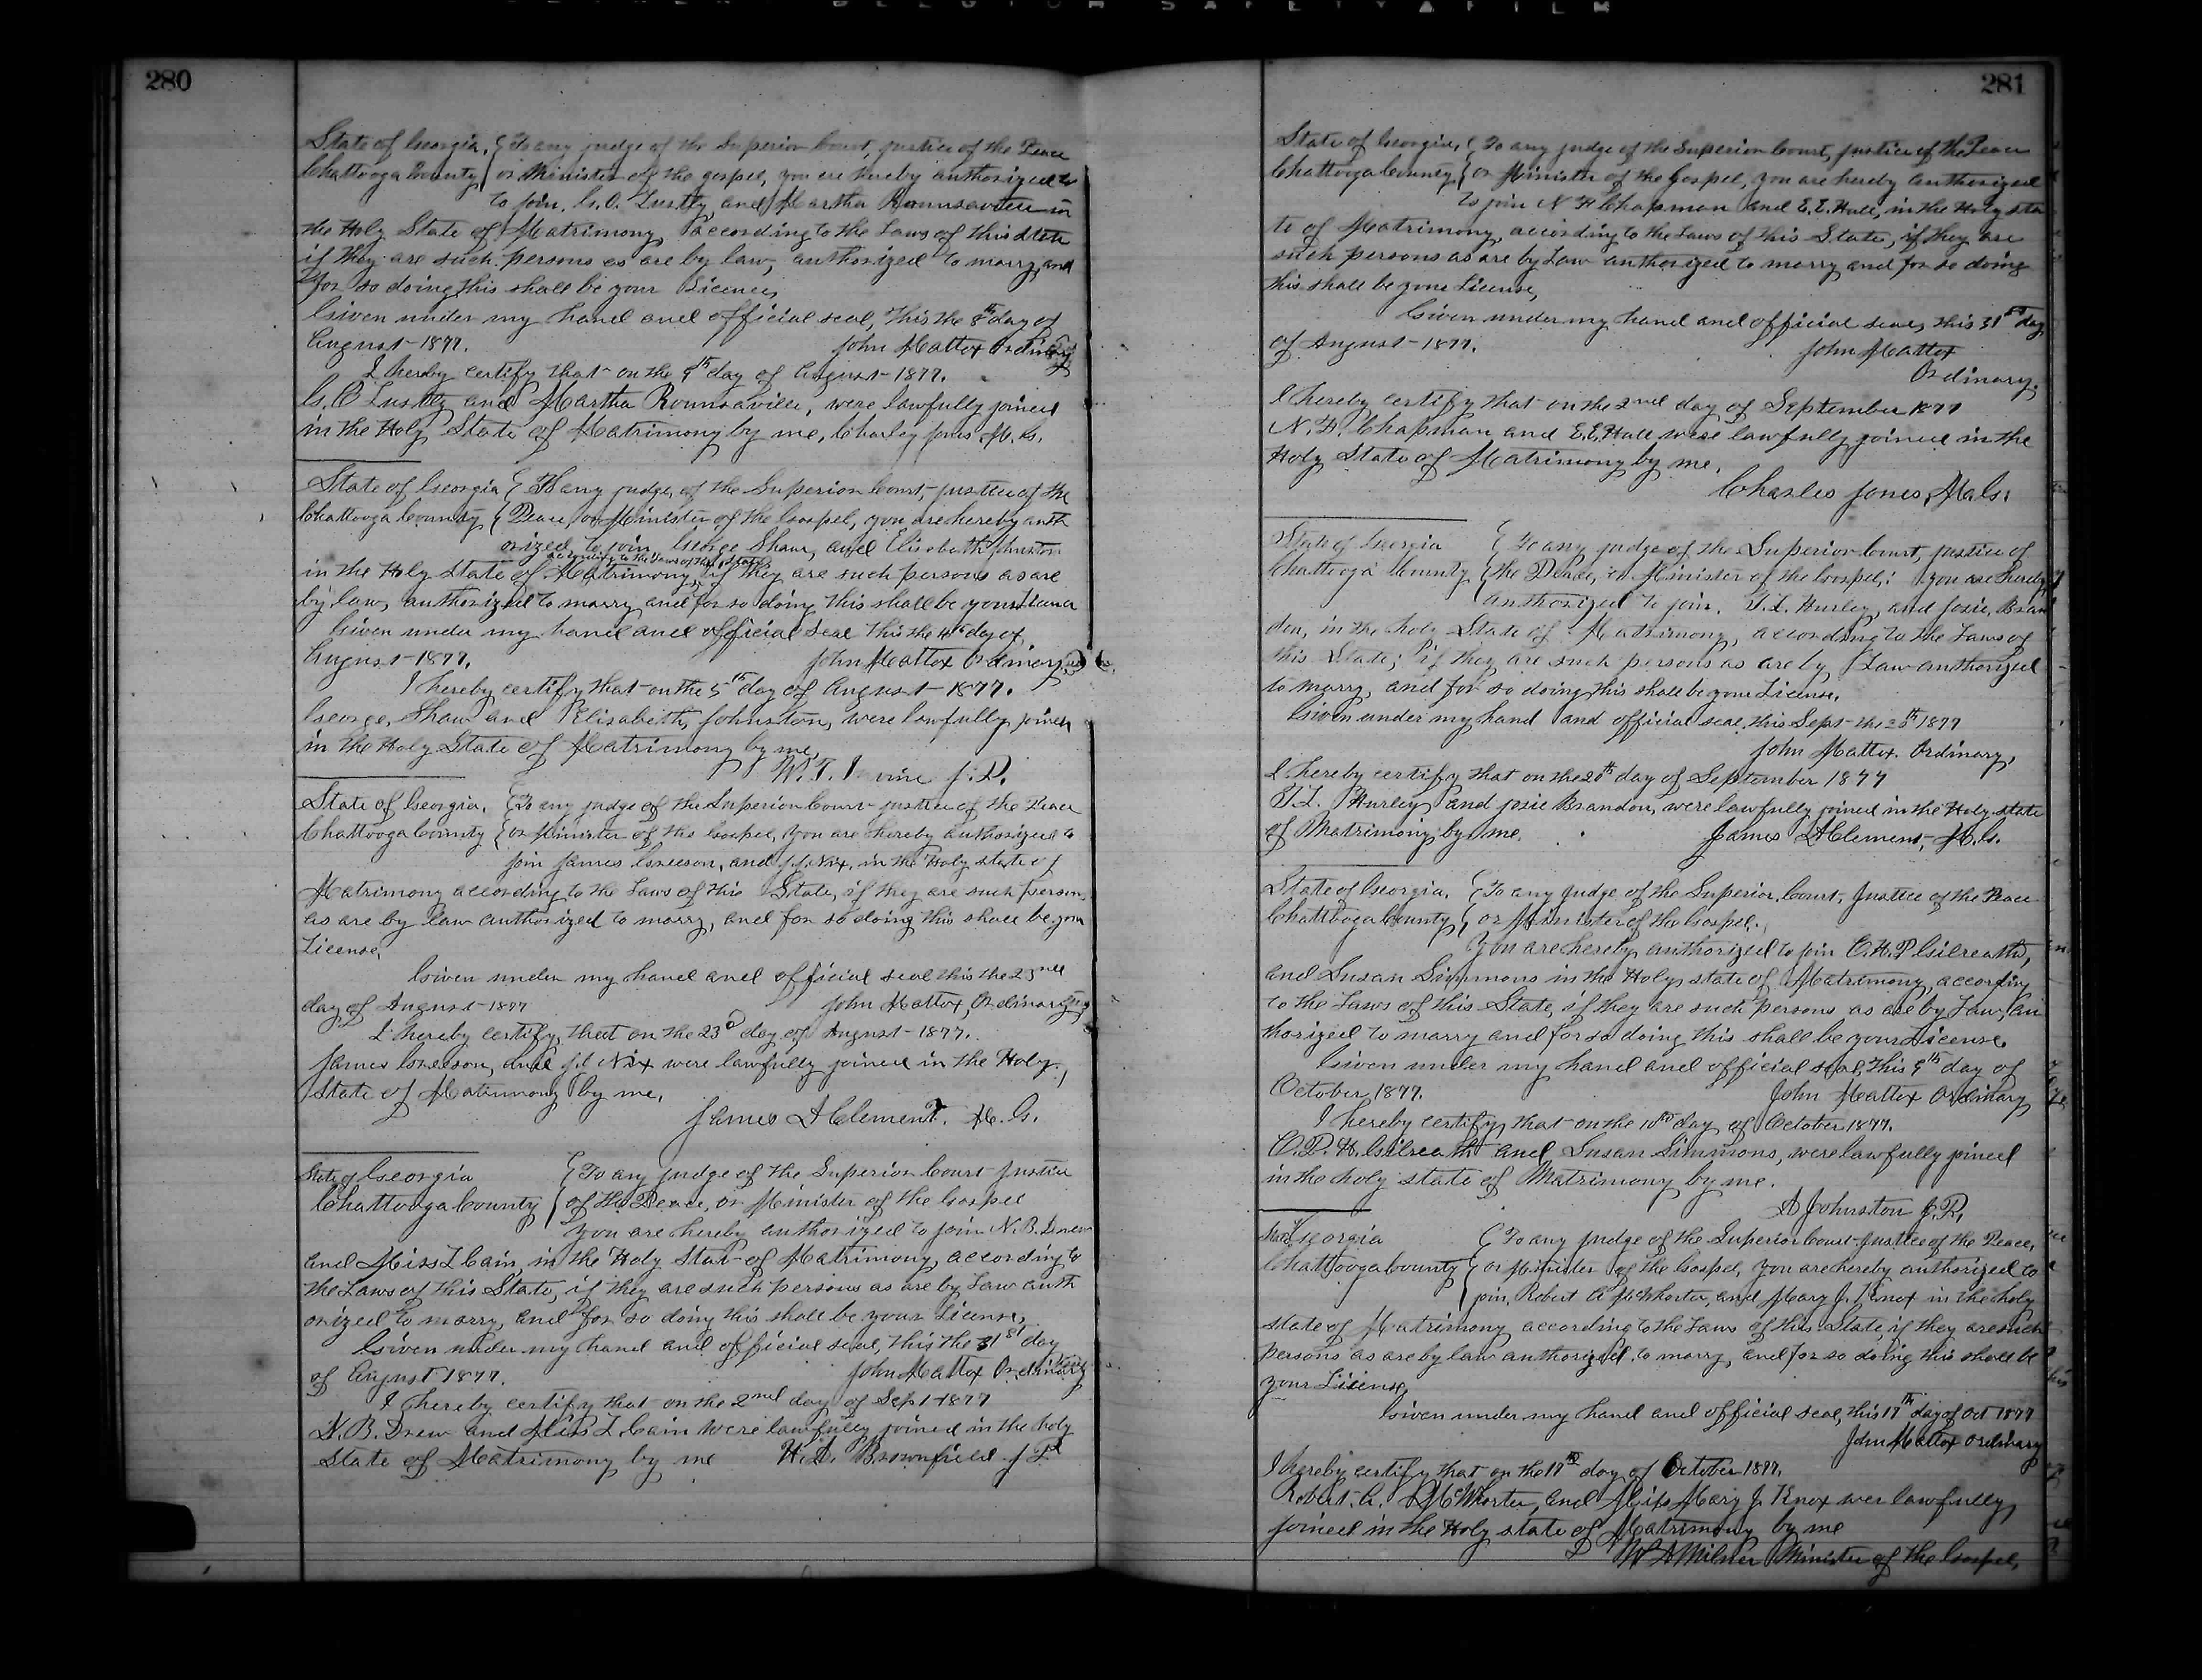 280
State of Georgia, To any judge of the Superior Court, justice of the Peace
Chattooga County or Minister of the gospel, you are hereby authorized to
to join, G. O. Lustly, and Martha Rounsaville in
the Holy State of Matrimony, according to the Laws of this State
if they are such persons as are by law, authorized to marry, and
for so doing this shall be your Licence,
Given under my hand and official seal, this the 8th day of
August 1877. John Mattox Ordinary
I hereby certify that on the 9th day of August 1877.
G. O Lustly and Martha Rounsaville, were lawfully joined
in the Holy State of Matrimony by me, Charley Jones M. G.
State of Georgia To any judge, of the Superior Court, justice of the
Chattooga County Peace, or Minister of the Gospel, you are hereby auth
orized to join George Shaw, and Elisabeth Johnston
according to the Laws of this State
in the Holy state of Matrimony, if they are such persons as are
by law, authorized to marry, and for so doing this shall be your License
Given under my hand and official seal this the 4th day of
August 1877. John Mattox Ordinary
I hereby certify that on the 5th day of August 1877.
George, Shaw and Elisabeth, Johnston, were lawfully joined
in the Holy State of Matrimony by me,
W. T. Irvine J. P.
State of Georgia, To any judge of the Superior Court justice of the Peace
Chattooga County or Minister of the Gospel, you are hereby authorized to
join James Greeson, and J. J. Nix, in the Holy state of
Matrimony according to the Laws of this State, if they are such persons
as are by law authorized to marry, and for so doing this shall be your
License,
Given under my hand and official seal this the 23nd
day of August 1877 John Mattox, Ordinary
I hereby certify, that on the 23d day of August 1877.
James Greeson, and J. J. Nix were lawfully joined in the Holy
State of Matrimony by me,
James A Clement. M. G.
State of Georgia To any judge of the Superior Court Justice
Chattooga County of the Peace, or Minister of the Gospel
you are hereby authorized to join N. B. Drew
and Miss L Cain, in the Holy Stat of Matrimony, according to
the Laws of this State, if they are such persons as are by Law auth
orized to marry, and for so doing this shall be your License,
Given under my hand and official seal, this the 31st day
of August 1877. John Mattox Ordinary
I hereby certify that on the 2nd day of Sept 1877
N. B. Drew and Miss L Cain were lawfully joined in the holy
State of Matrimony by me H. D. Brownfield J P
281
State of Georgia, To any judge of the Superior Court, justice of the Peace
Chattooga County or Minister of the Gospel, you are hereby authorized
to join N. H Chapman and E. E. Hall, in the Holy sta
te of Matrimony, according to the Laws of this State, if they are
such persons as are by Law authorized to marry and for so doing
this shall be your License,
Given under my hand and official seal, this 31st day
of August 1877. John Mattox
Ordinary,
I hereby certify that on the 2nd day of September 1877
N. H. Chapman and E. E. Hall were lawfully joined in the
Holy State of Matrimony by me,
Charles Jones,
State of Georgia To any judge of the Superior Court, justice of
Chattooga County the Peace, or Minister of the Gospel, you are hereby
authorized to join, T. L. Hurley, and Josie, Bran
don, in the holy State of Matrimony, according to the Laws of
this State; if they are such persons as are by Law authorized
to marry, and for so doing this shall be your License,
Given under my hand and official seal, this Sept the 1877
John Mattox Ordinary,
I hereby certify that on the 20th day of September 1877
T. L. Hurley and Josie Brandon, were lawfully joined in the Holy state
of Matrimony, by me, James A Clement, M. G.
State of Georgia, To any judge of the Superior, Court, Justice of the Peace
Chattooga County, or Minister of the Gospel,
you are hereby authorized to join O. H. P Gilreath,
and Susan Simmons in the Holy state of Matrimony, according
to the Laws of this State, if they are such persons as are by Law, au
thorized to marry and for so doing this shall be your License
Given under my hand and official seal, this 9th day of
October 1877. John Mattox Ordinary
I hereby certify, that on the 10th day of October 1877.
O. P. H. Gilreath and Susan Simmons, were lawfully joined
in the holy state of Matrimony by me.
A Johnston J. P.
State Georgia To any judge of the Superior Court Justice of the Peace,
Chattooga County or Minister of the Gospel, you are hereby authorized to
join, Robert A McWhorter, and Mary J. Knox in the holy
state of Matrimony according to the Laws of this State, if they are such
persons as are by law authorized to marry, and for so doing this shall be
your License,
Given under my hand and official seal, this 17th day of Oct 1877
John Mattox Ordinary
I hereby certify that on the 17th day of October 1877,
Robert. A. McWhorter, and Miss Mary J. Knox wer lawfully,
joined in the Holy state of Matrimony by me
W A Milner Minister of the Gospel,